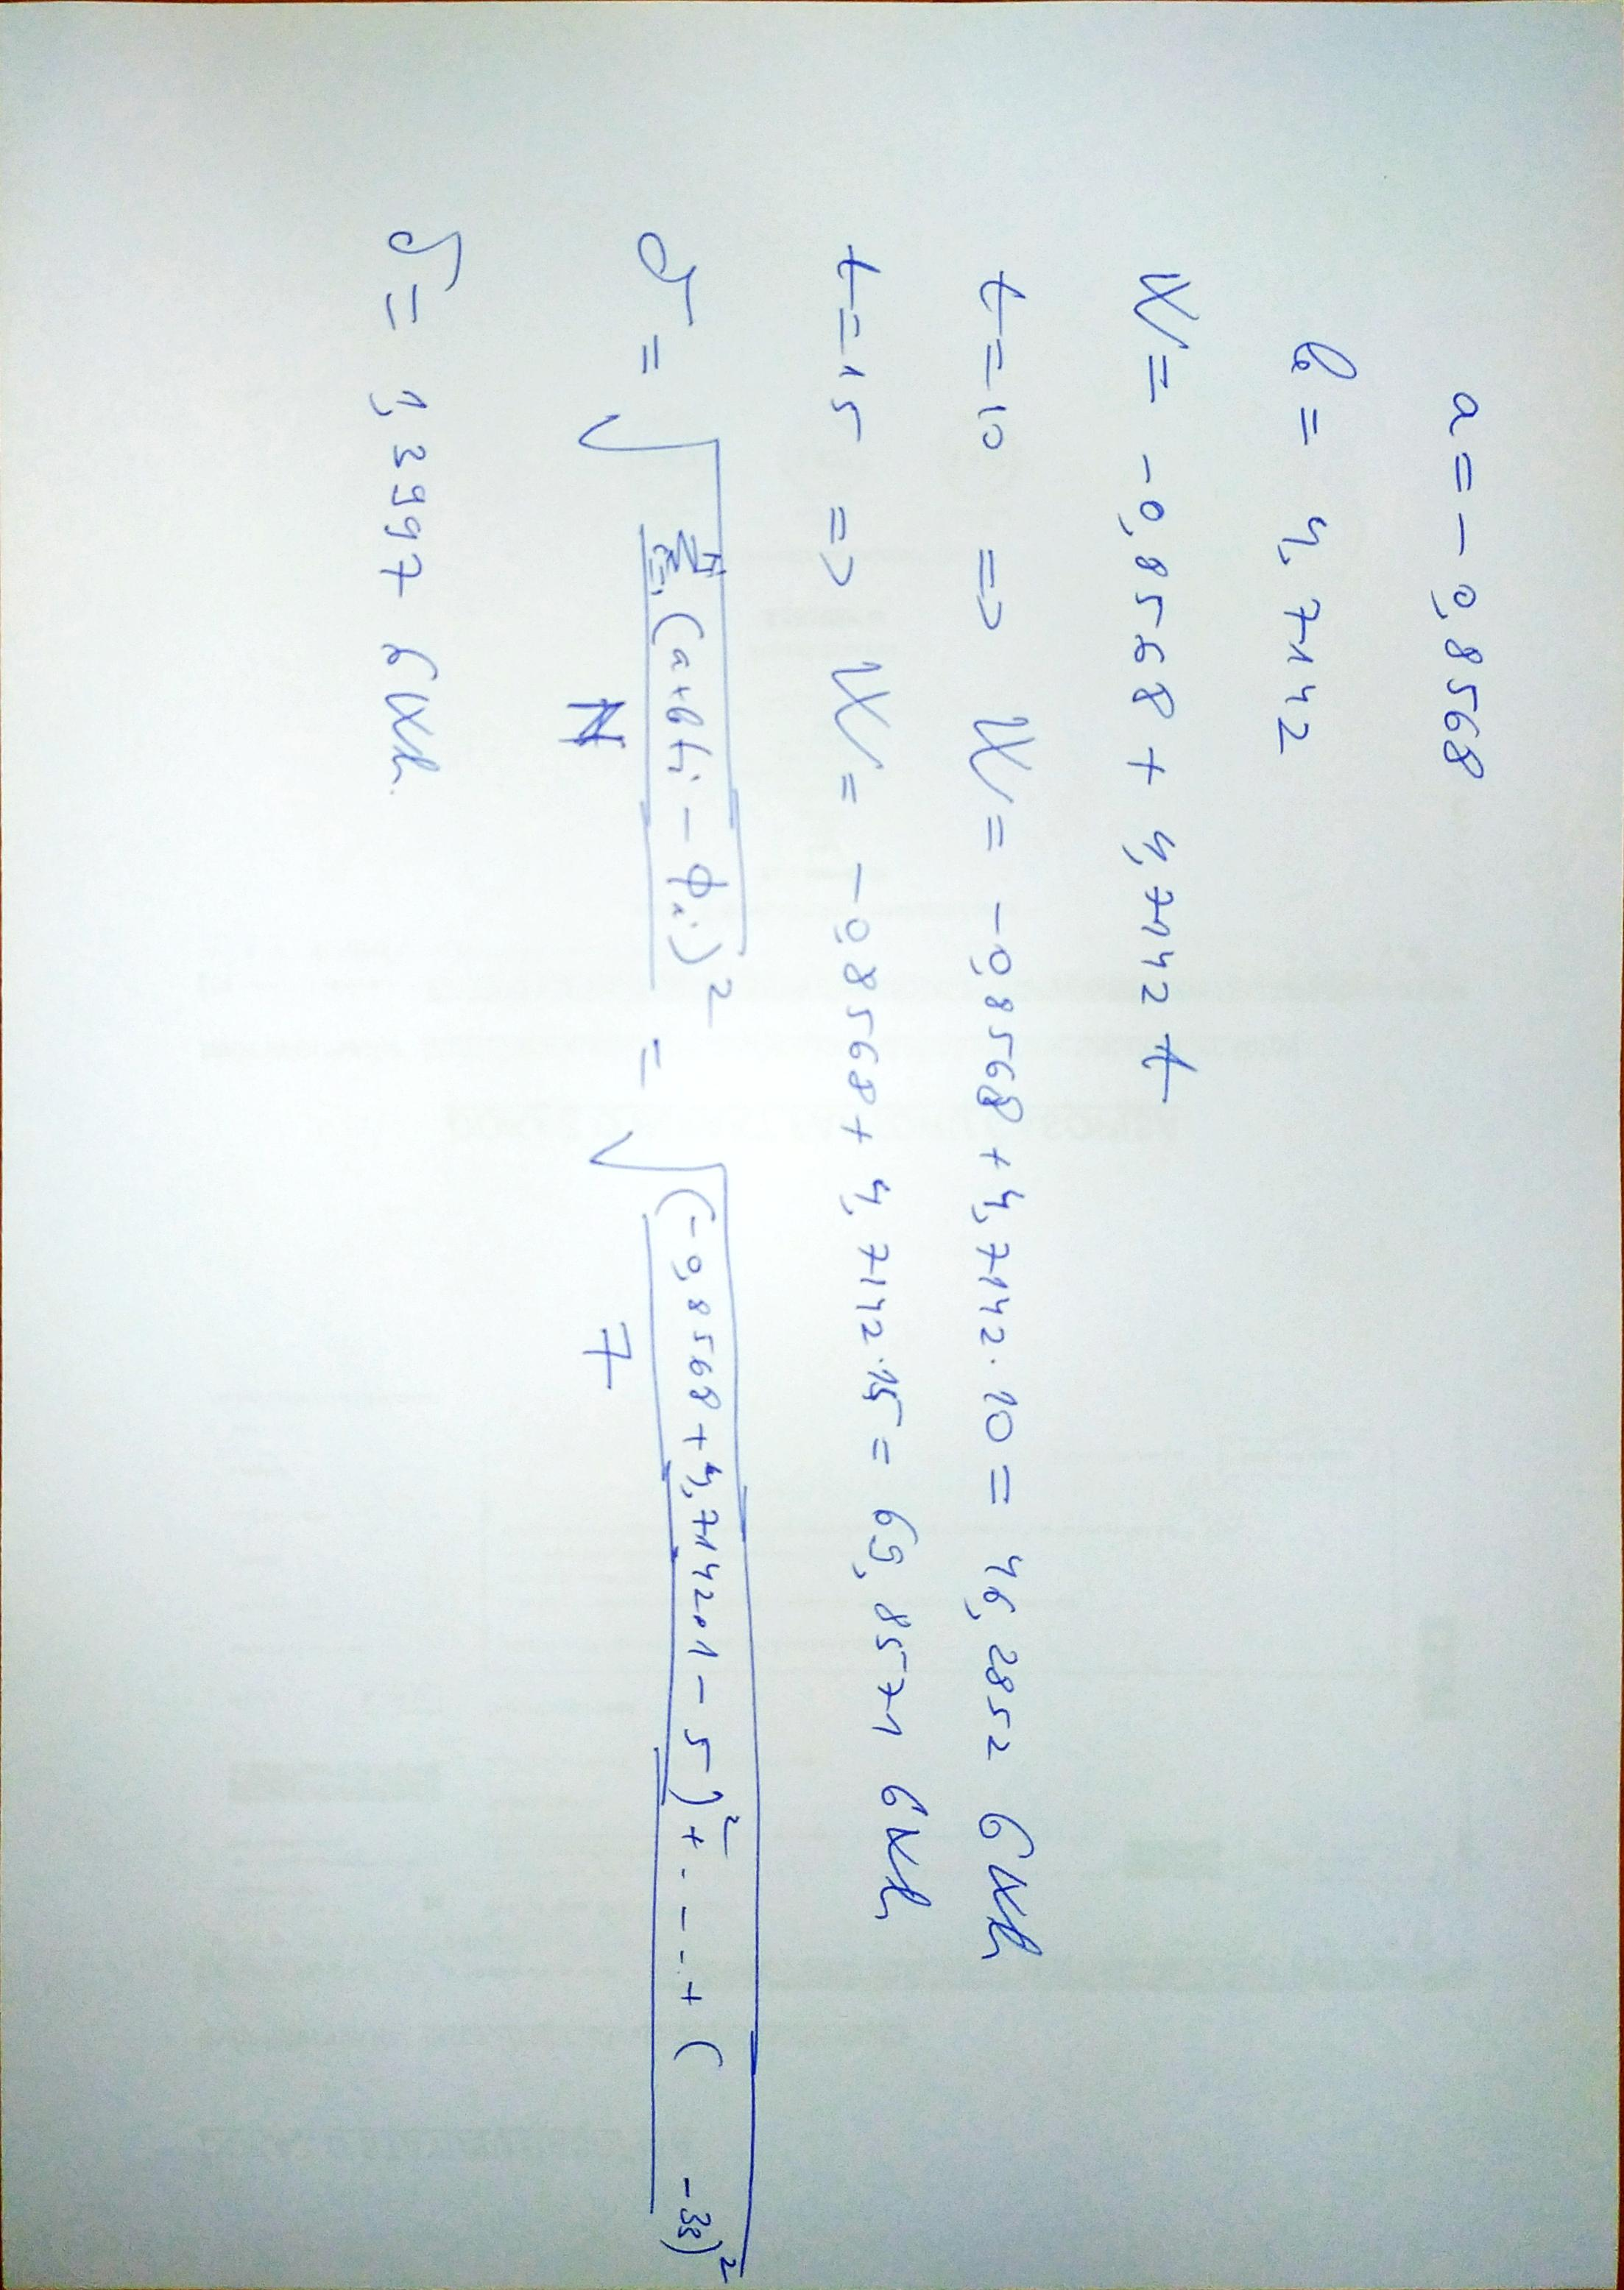 a = - 0,8568
b = 4,7142
W = -0,8568 + 4,7142 t
t = 10 => W = -0,8568 + 4,7142 · 10 = 46,2852 GWh
t = 15 => W = -0,8568 + 4,7142 · 15 = 69,8571 GWh
σ = √ Σ (a+bti - ϕi)² / N = √ (-0,8568 + 4,7142·1 - 5)² + . - - . + ( -33)² / 7
σ = 1,3997 GWh.